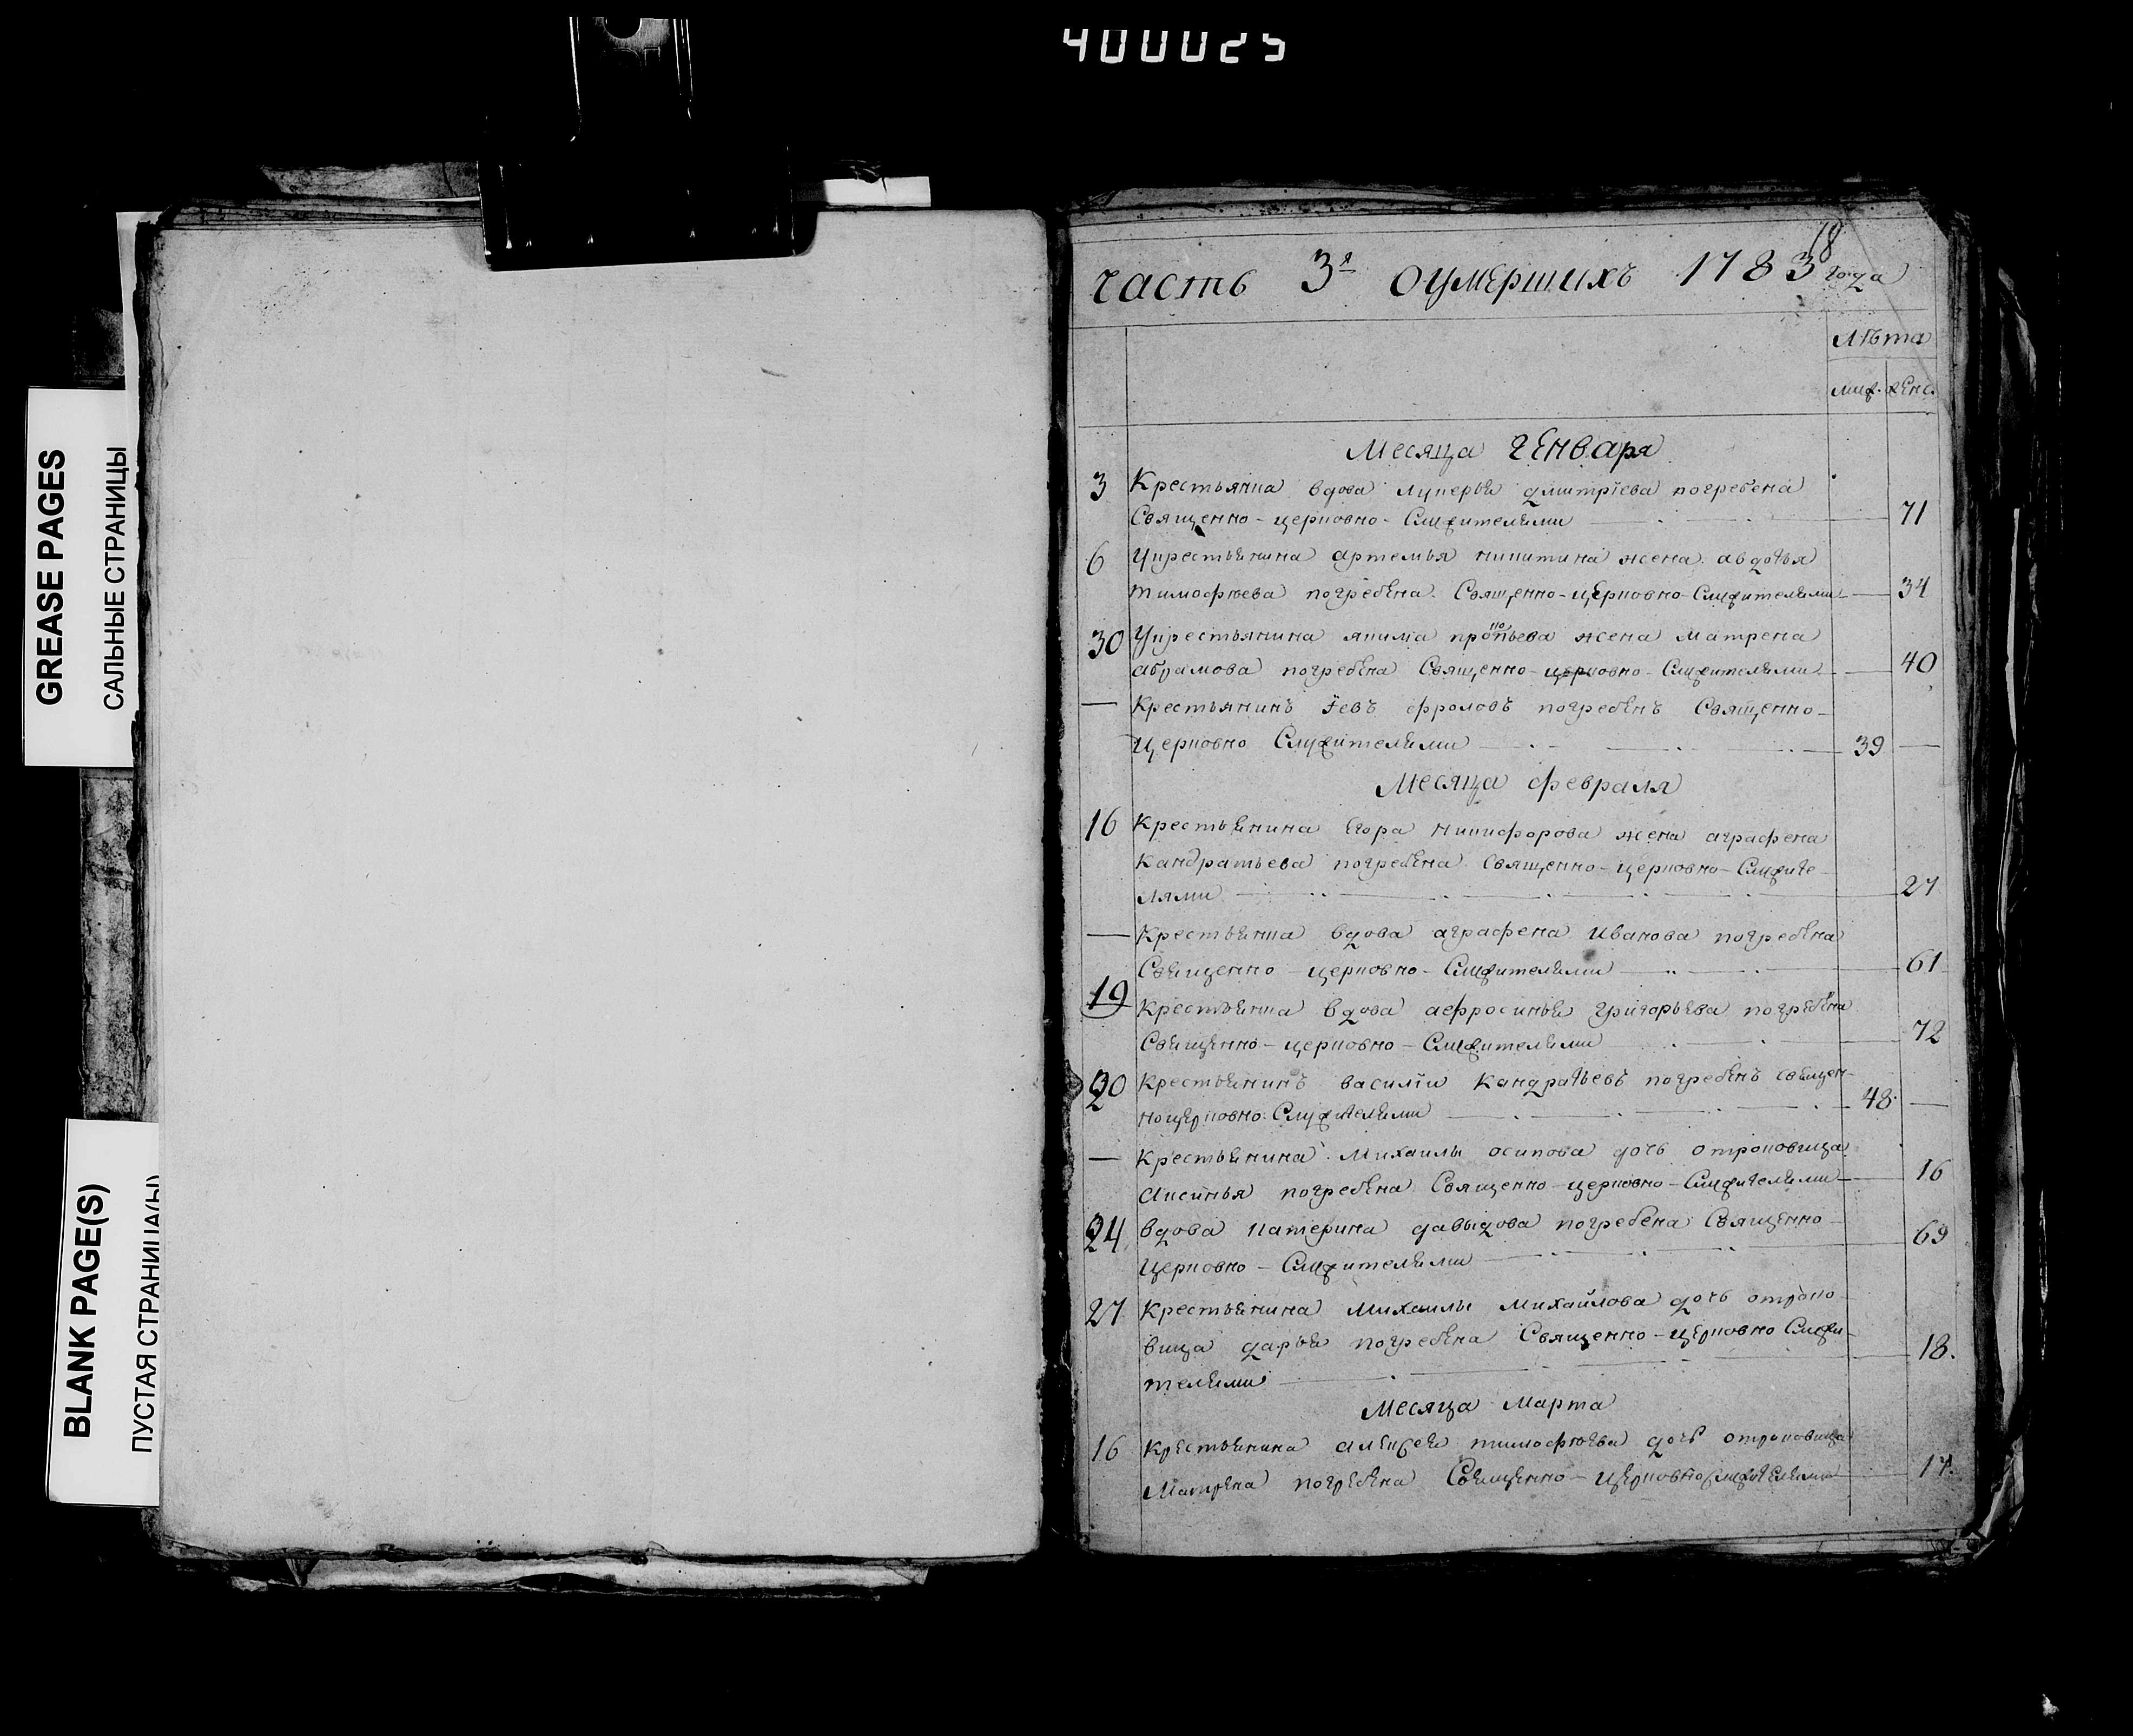 400025
GREASE PAGES
САЛЬНЫЕ СТРАНИЦЫ
BLANK PAGE(S)
ПУСТАЯ СТРАНИЦА(Ы)
18
часть 3я оумершихъ 1783 года
Лѣта
муж. женс.
Месяца Генваря
3 Крестьянка вдова лукерья дмитрїева погребена
Священно-церковно-Служителями 71
6 Укрестьянина артемья никитина жена авдотья
тимофѣева погребена Священно-церковно-Служителями 34
30 Укрестьянина якима прокопьева жена матрена
абрамова погребена Священно-церковно-Служителями 40
— Крестьянинъ Іевъ фроловъ погребенъ Священно-
церковно Служителями 39 —
Месяца февраля
16 Крестьянина Егора никифорова жена аграфена
Кандратьева погребена Священно-церковно-Служите-
лями 27
— Крестьянка вдова аграфена Иванова погребена
Священно-церковно-Служителями 61
19 Крестьянка вдова аефросинья григорьева погребена
Священно-церковно-Служителями 72
20 Крестьянинъ василїи Кандратьевъ погребенъ священ-
ноцерковно Служителями 48 —
— Крестьянина Михаилы осипова дочь отроковица
Аксинья погребена Священно-церковно-Служителями 16
24 вдова катерина давыдова погребена Священно-
Церковно-Служителями 69
27 Крестьянина михаилы михайлова дочь отроко-
вица дарья погребена Священно-церковно Служи-
телями 18.
Месяца Марта
16 Крестьянина алексея тимофѣева дочь отроковица
Матрена погребена Священно-церковнослужителями 17.